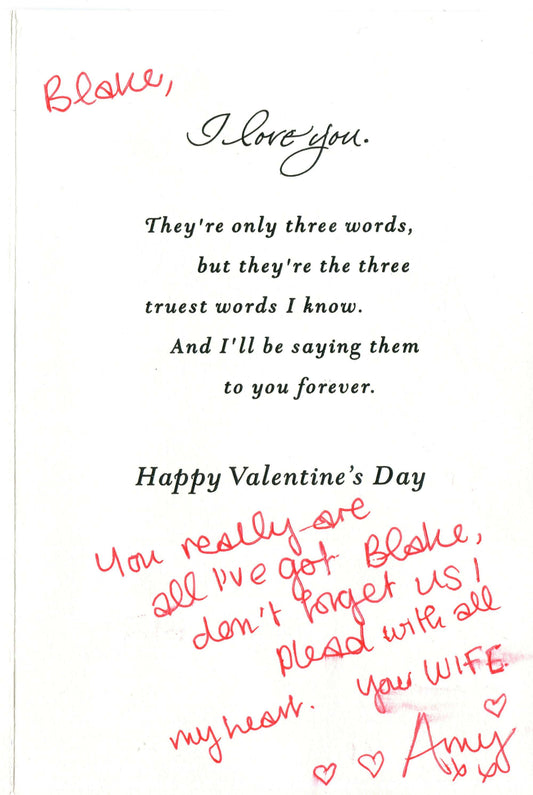 Blake,
I love you.
They're only three words,
but they're the three
truest words I know.
And I'll be saying them
to you forever.
Happy Valentine's Day
You really are
all I've got Blake,
don't forget us I
plead with all
my heart. your WIFE
Amy
xx